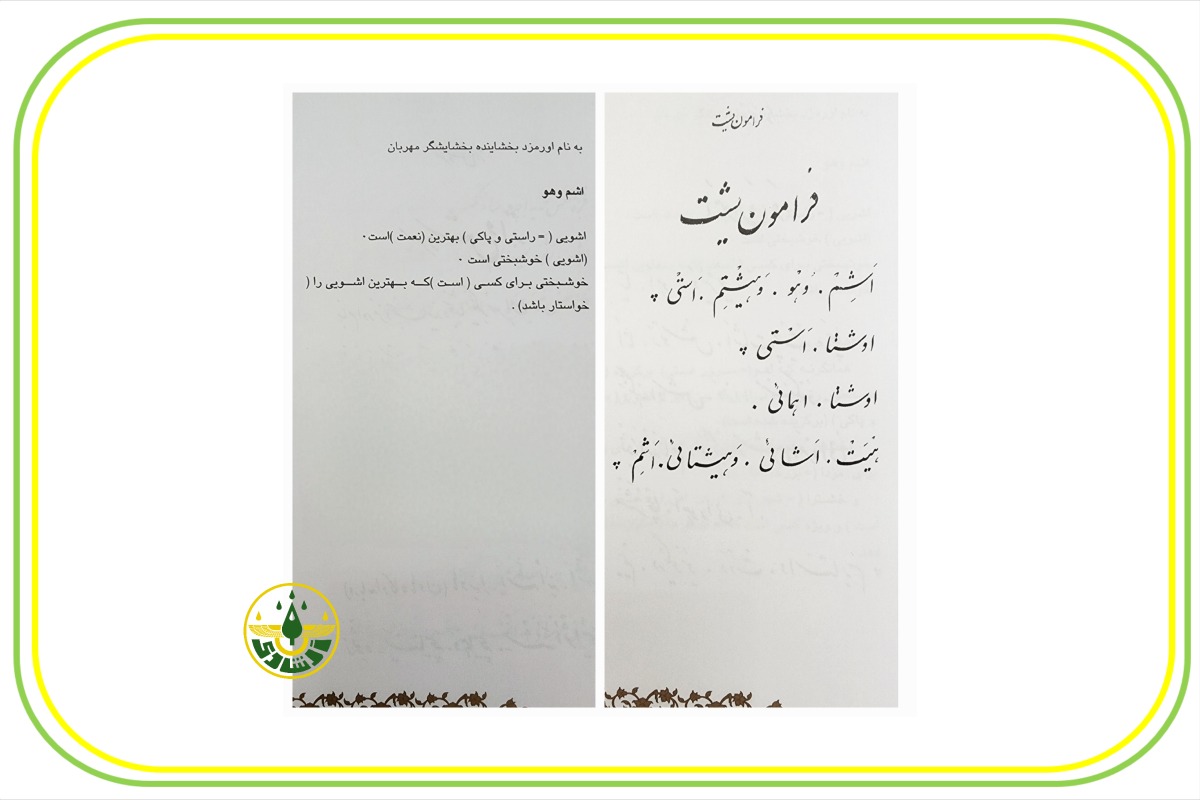 فرامون یشت
فرامون یشت
اَشِمْ . وُهو . وَهیشْتِم . اَستی
اوشتا . اَسْتی
اوشتا . اهمائی .
هْیَتْ . اَشائی . وَهیشتائی . اَشِمْ
به نام اورمزد بخشاینده بخشایشگر مهربان
اشم وهو
اشویی ( = راستی و پاکی ) بهترین (نعمت )است.
(اشویی ) خوشبختی است .
خوشبختی برای کسی ( است )که بهترین اشویی را (
خواستار باشد) .